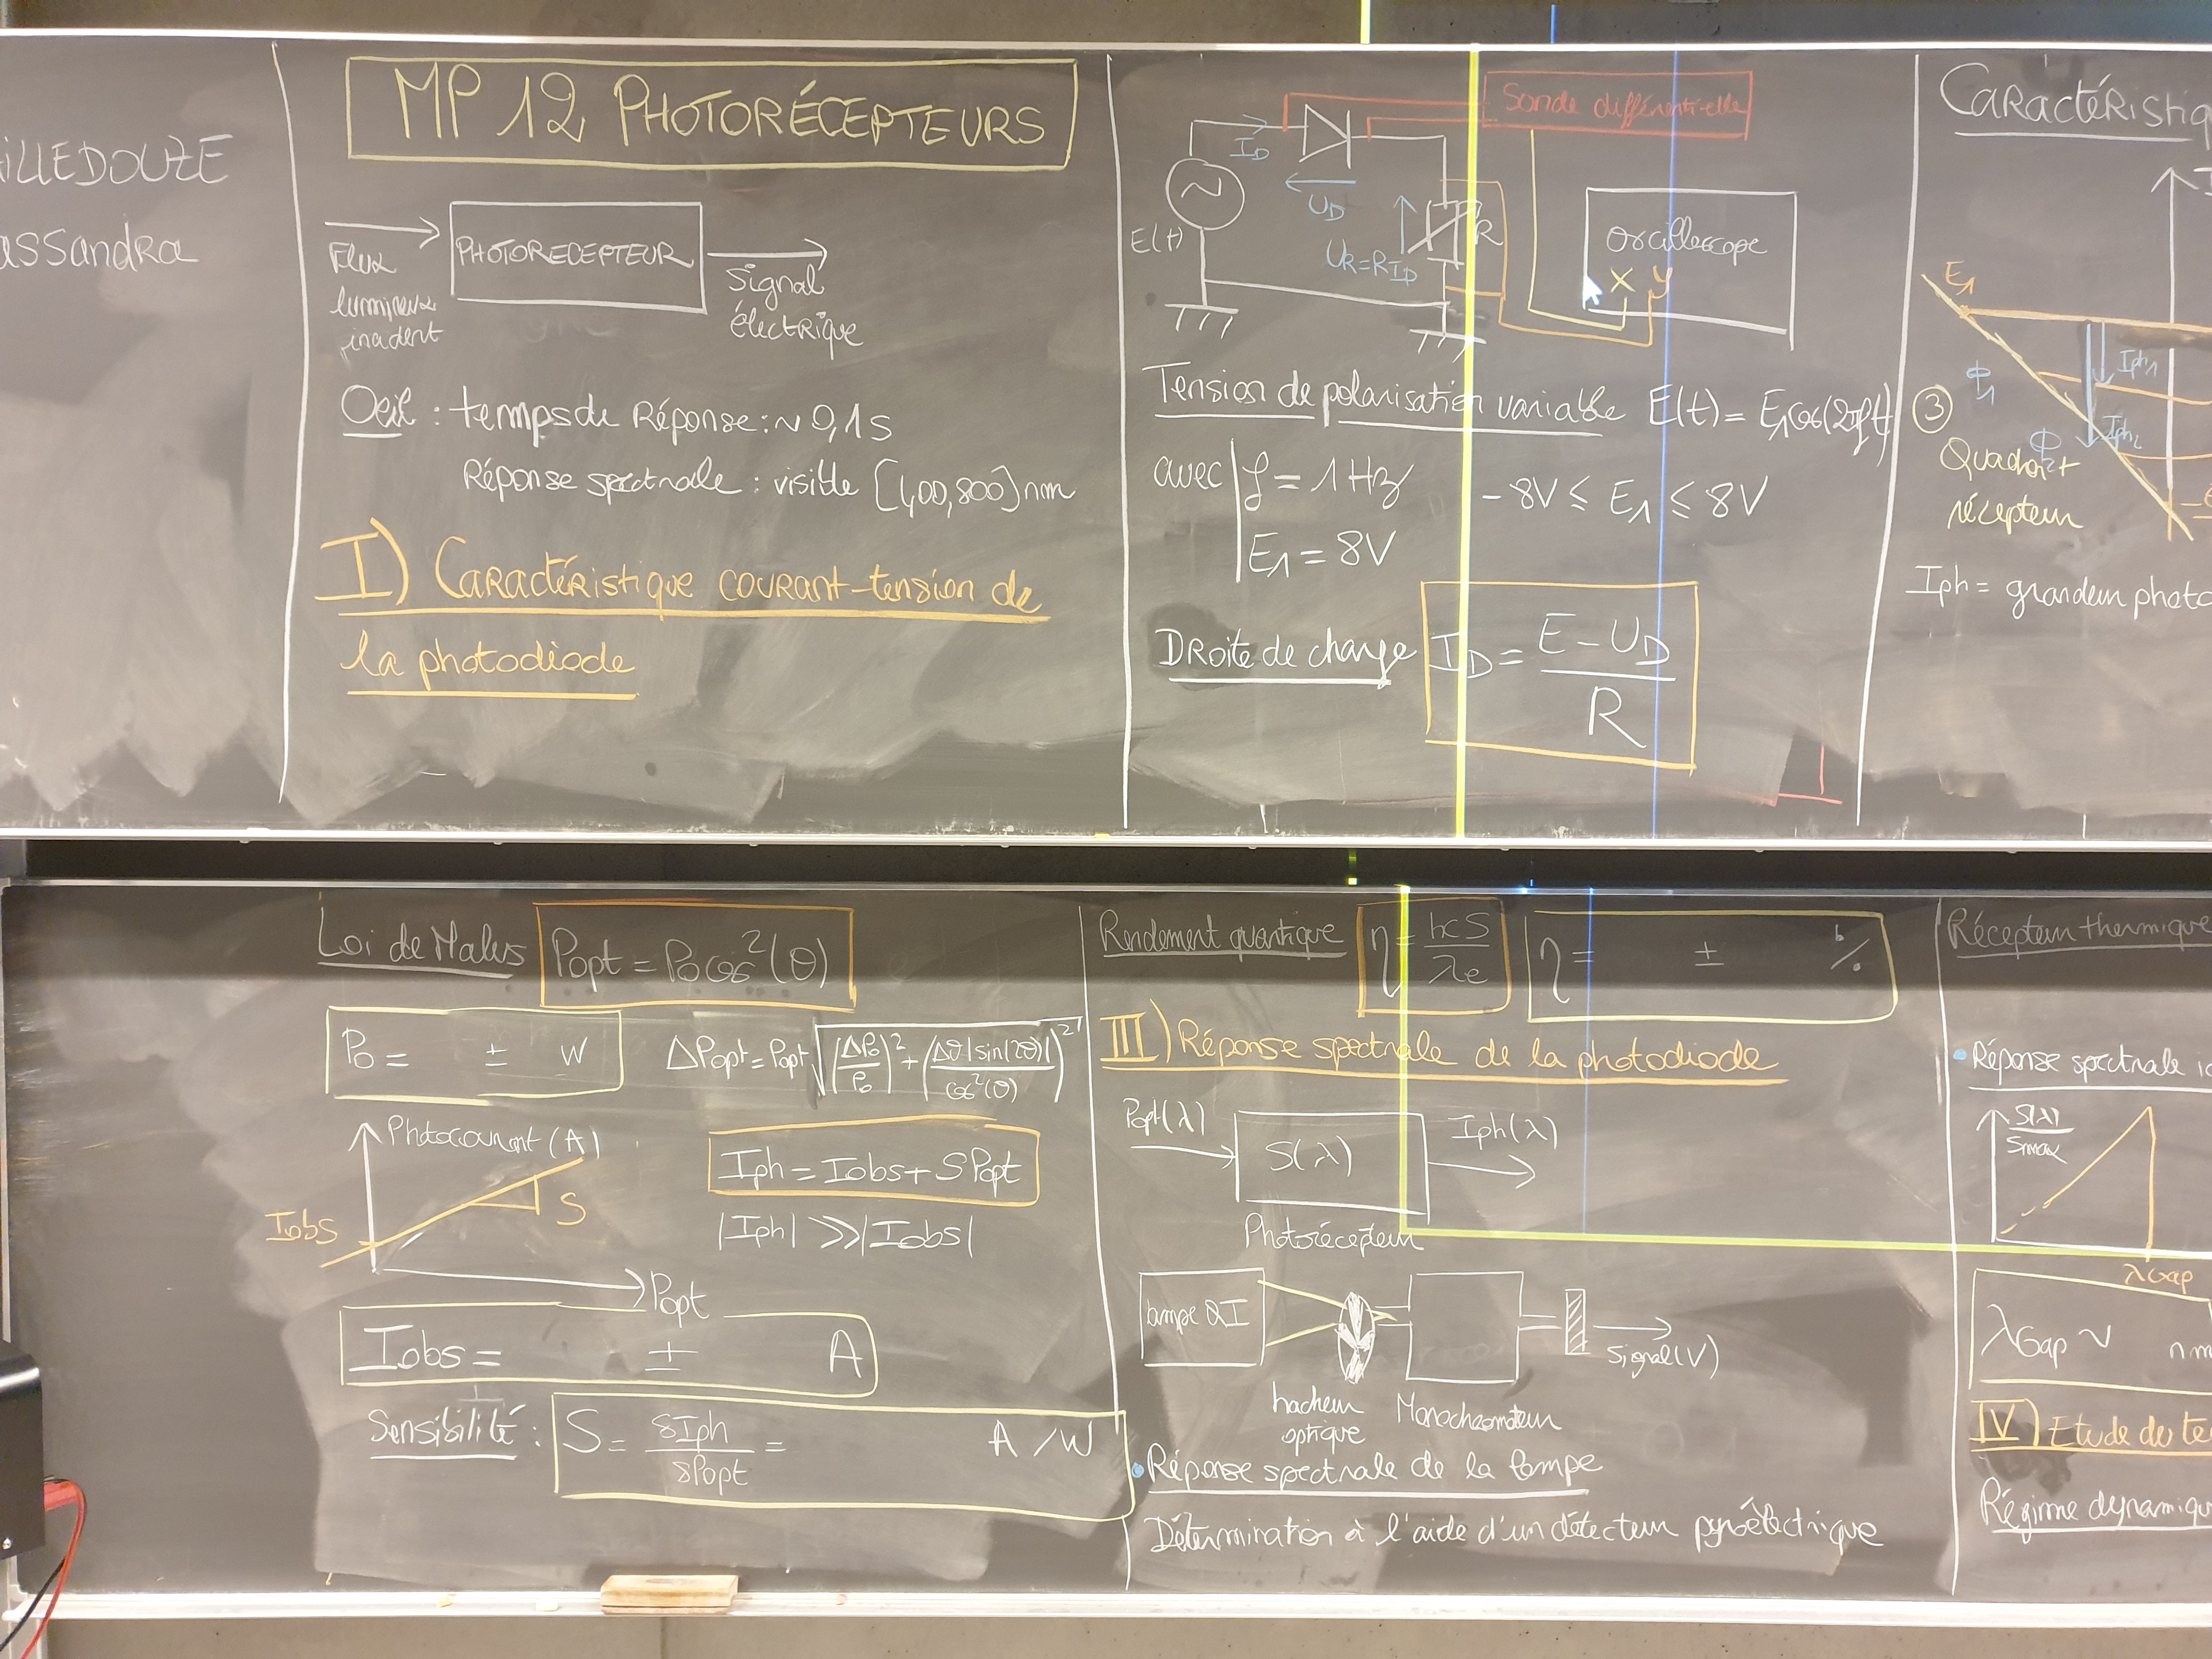 ILLEDOUZE
assandra
MP 12 PHOTORÉCEPTEURS
Flux
lumineux
incident
PHOTORECEPTEUR
Signal
électrique
Oeil : temps de Réponse : ~ 0,1 s
Réponse spectrale : visible [400,800] nm
I) Caractéristique courant-tension de
la photodiode
Sonde différentielle
I_D
U_D
E(t)
U_R = R I_D
R
oscilloscope
X Y
Tension de polarisation variable E(t) = E_1 cos(2πft)
avec f = 1 Hz
- 8V ≤ E_1 ≤ 8V
E_1 = 8V
Droite de charge I_D = (E - U_D) / R
Caractéristiq
E_1
Iph_1
Φ_1
Iph_2
Φ_2
③
Quadrant
récepteur
Iph = grandeur photo
Loi de Malus Popt = P_0 cos²(θ)
P_0 = ± W
ΔPopt = Popt √((ΔP_0/P_0)² + (Δθ|sin(2θ)|/cos²(θ))²)
Photocourant (A)
Iobs
S
Popt
Iph = Iobs + S Popt
|Iph| ≫ |Iobs|
Iobs = ± A
Sensibilité : S = δIph/δPopt = A/W
Rendement quantique η = hcS/λe
η = ± %
III) Réponse spectrale de la photodiode
Popt(λ)
S(λ)
Iph(λ)
Photorécepteur
lampe QI
hacheur
optique
Monochromateur
Signal (V)
• Réponse spectrale de la lampe
Détermination à l'aide d'un détecteur pyroélectrique
Récepteur thermique
• Réponse spectrale id
S(λ)/Smax
λGap
λGap ~ nm
IV) Etude du te
Régime dynamiqu